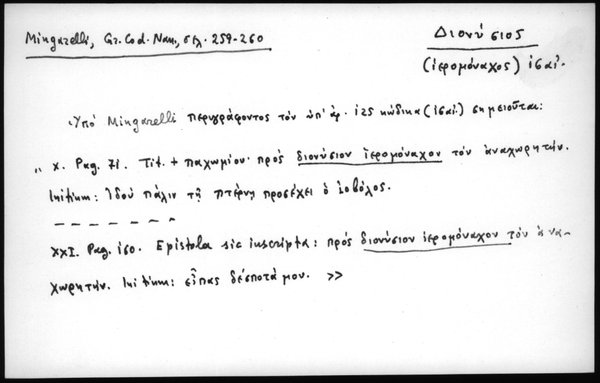 Mingarelli, Gr. Cod. Nan., σελ. 259-260
Διονύσιος
(ἱερομόναχος) ιϛαι.
Ὑπό Mingarelli περιγράφοντος τόν ὑπ' ἀρ. 125 κώδικα (ιϛαι.) σημειοῦται:
„ X. Pag. 71. Tit. + παχωμίου· πρός διονύσιον ἱερομόναχον τόν ἀναχωρητήν.
Initium: Ἰδού πάλιν τῇ πτέρνῃ προσέχει ὁ ἰοβόλος.
- - - - - - -
XXI. Pag. 150. Epistola sic inscripta: πρός διονύσιον ἱερομόναχον τόν ἀνα-
χωρητήν. Initium: εἶπας δέσποτά μου. >>